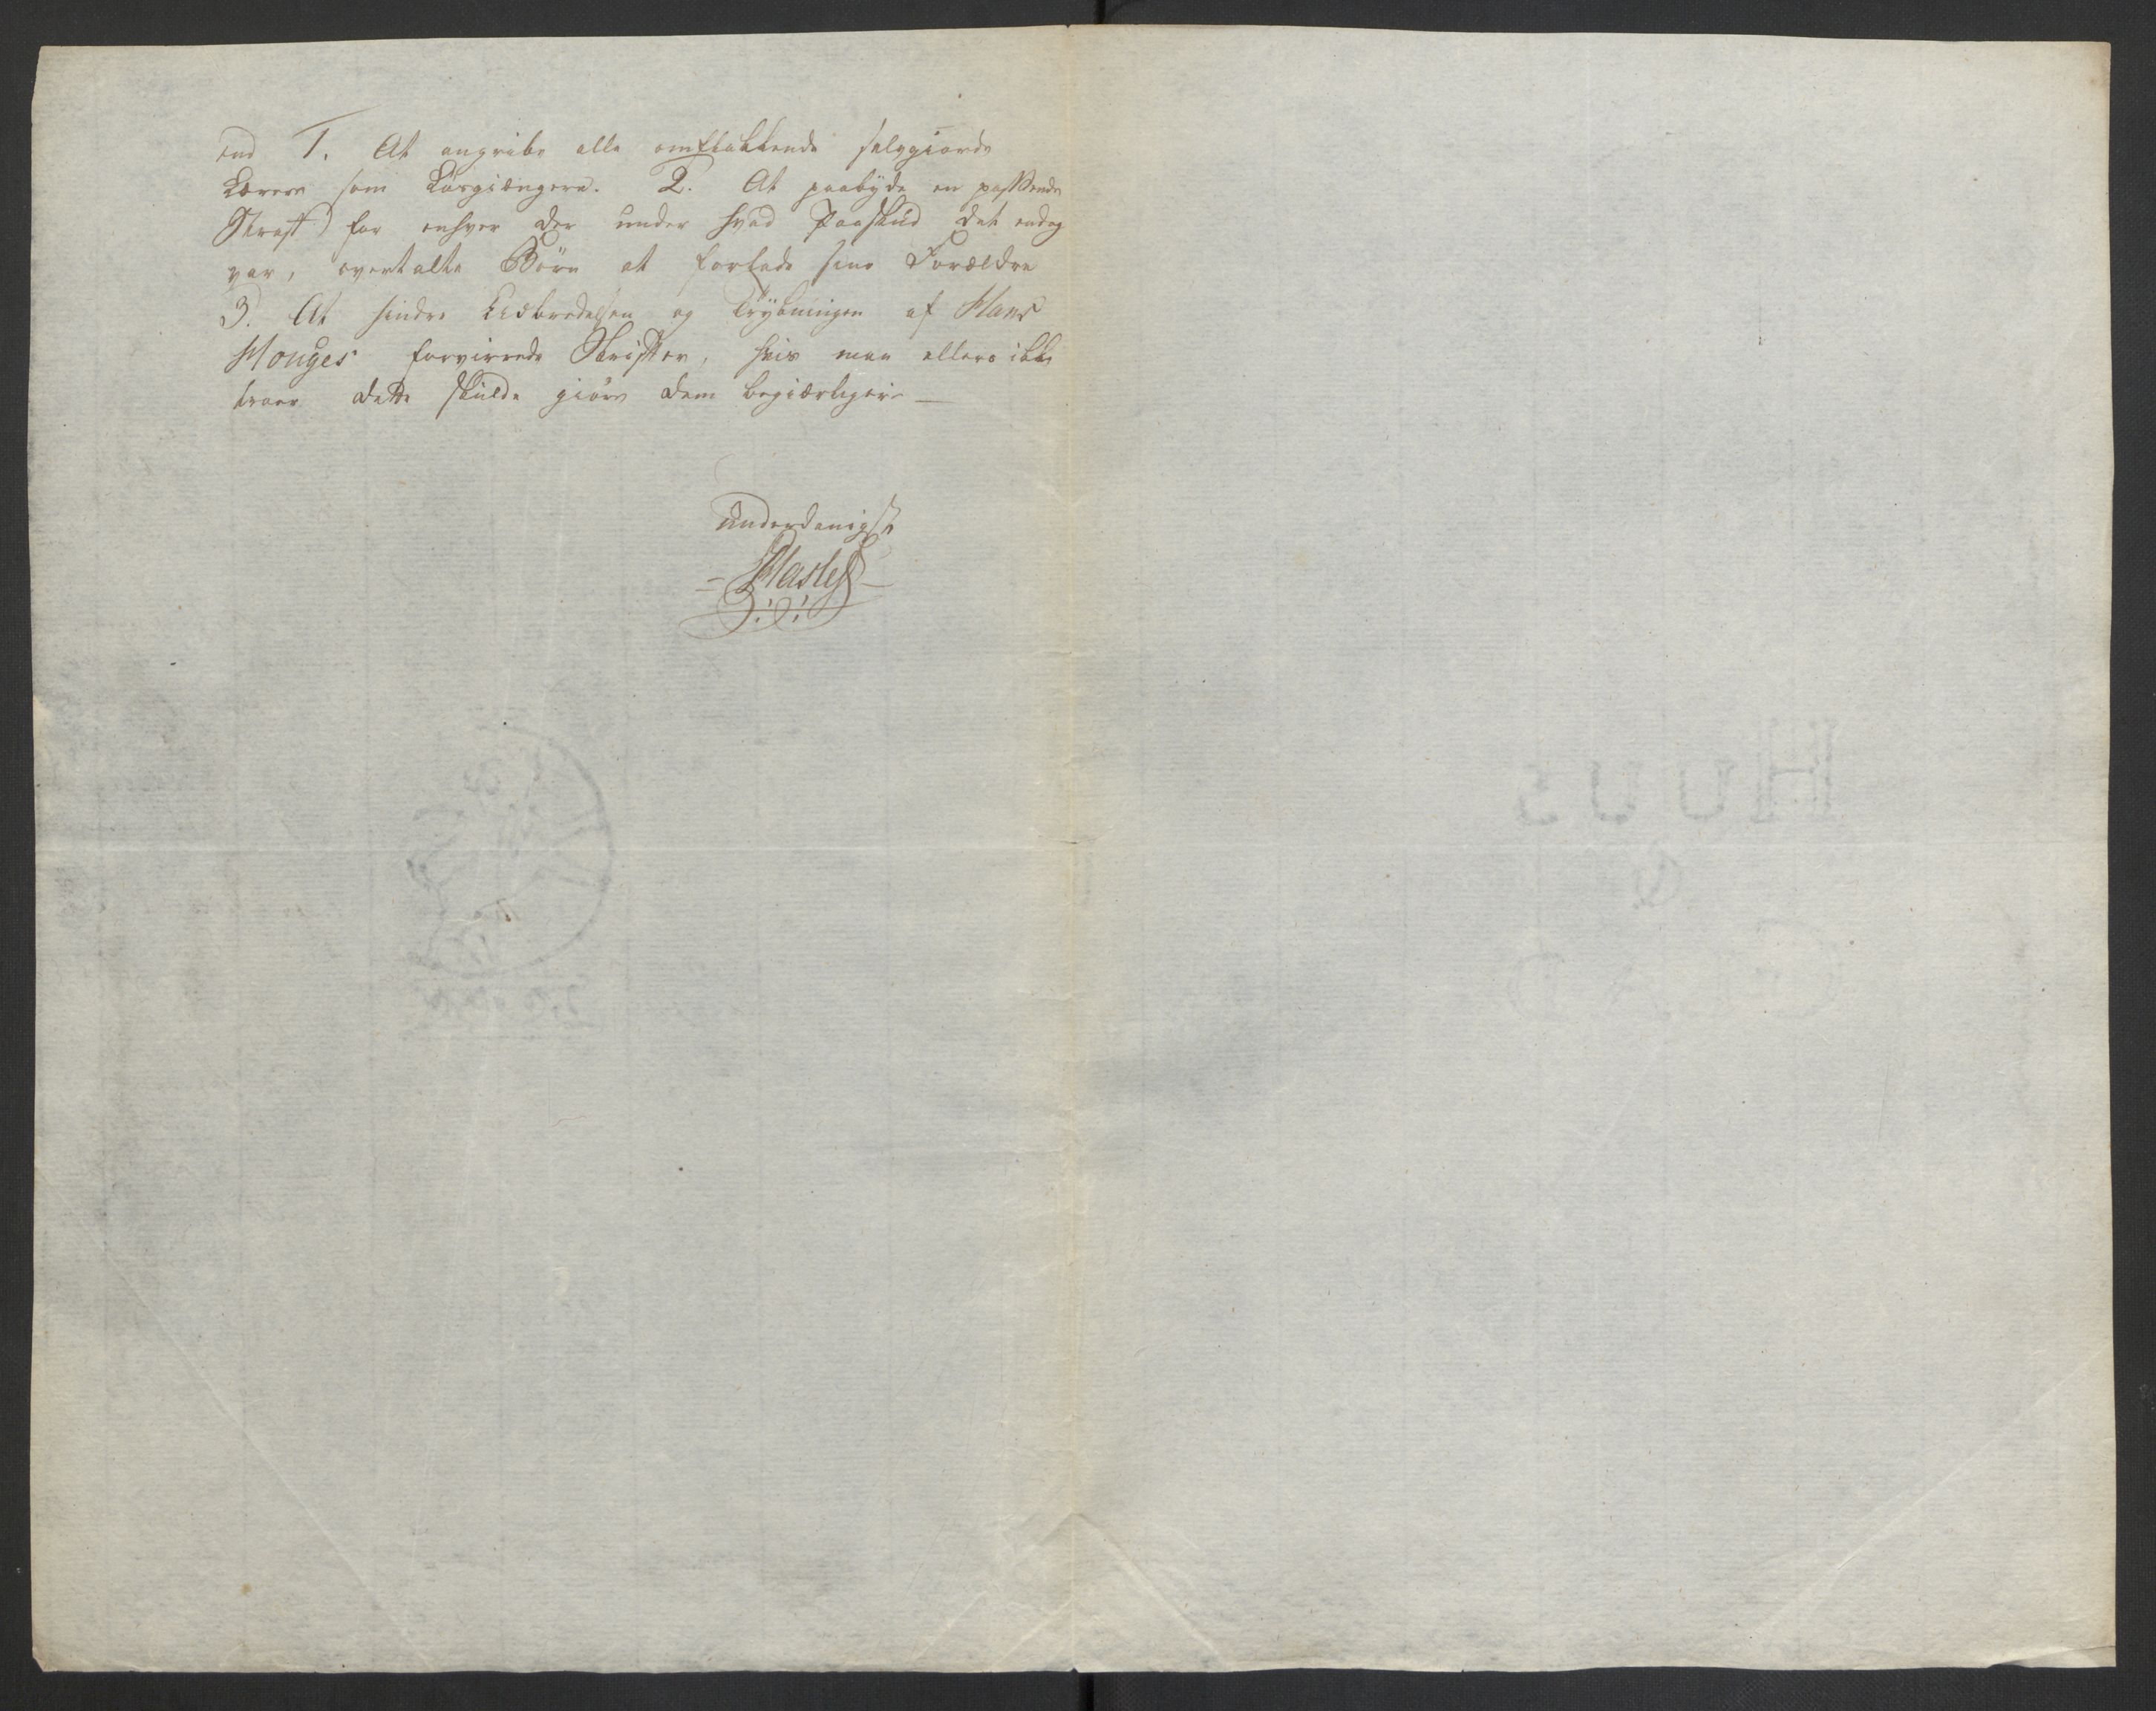 end 1. At angribe alle omflakkende selvgiorde
Lærere som Løsgiængere. 2. At paabÿde en passende
Straff for enhver der under hvad Paaskud det endog
var, overtalte Börn at forlade sine Forældre
3. At hindre Udbredelsen og Trÿkningen af Hans
Houges forvirrede Skrifter, hvis man ellers ikke
troer dette skulde giöre dem begiærligere —
underdanigst